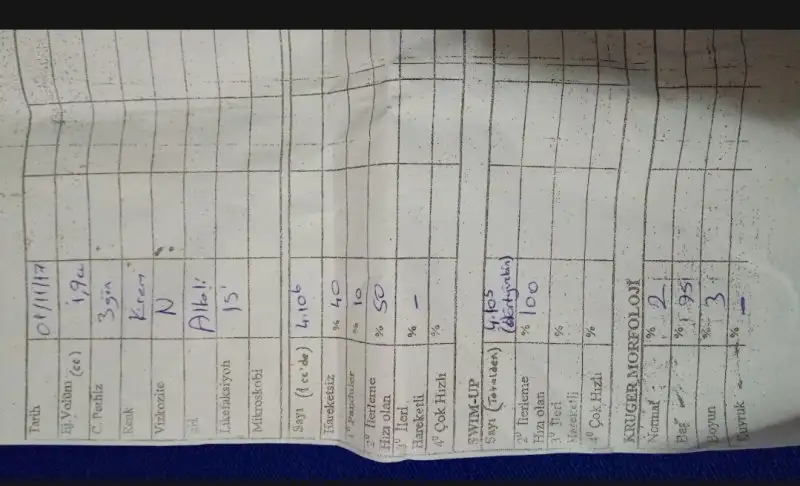 Tarih 01/11/17
Ej.Volüm (cc) 1,9cc
C. Perhiz 3 gün
Renk Krem
Vizkozite N
Alkali
Likefaksiyon 15'
Mikroskobi
Sayı (1 cc'de) 4.10⁶
Hareketsiz % 40
1⁰ Pandüler % 10
2⁰ İlerleme
Hızı olan % 50
3⁰ İleri
Hareketli % -
4⁰ Çok Hızlı %
SWIM-UP
Sayı (Tovalden) 4.10⁵
2⁰ İlerleme % 100
Hızı olan
3⁰ İleri %
Hareketli
4⁰ Çok Hızlı %
KRUGER MORFOLOJİ
Normal % 2
Baş % 95
Boyun % 3
Kuyruk % -